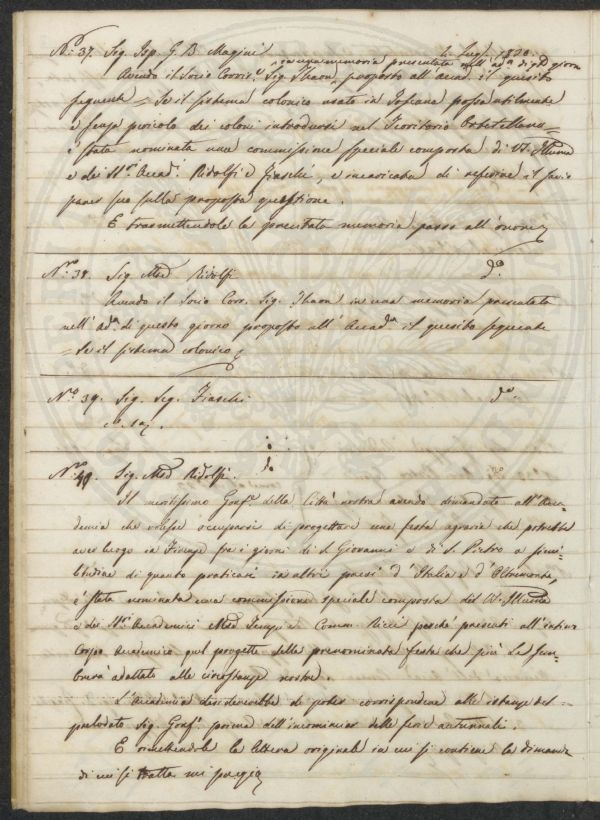 N.º 37. Sig. Isp. G. B. Magini 4 Lugl. 1830.
con una memoria presentata nell' ad.ª di q.to giorno
Avendo il Socio Corris.e Sig. Thaon, proposto all' Accad. il quesito
seguente = Se il sistema colonico usato in Toscana possa utilmente
e senza pericolo dei coloni introdursi nel Territorio Orbetellano =
è stata nominata una commissione speciale composta di VS. Illuma
e dei SS.ri Accad.i Ridolfi e Fiaschi, e incaricata di referire il savio
parer suo sulla proposta questione.
E trasmettendole la precitata memoria passo all' onore
N.º 38. Sig. M.se Ridolfi d.º
Avendo il Socio Corr. Sig. Thaon in una memoria presentata
nell' Ad.ª di questo giorno proposto all' Accad.a il quesito seguente
= Se il sistema colonico
N.º 39. Sig. Seg. Fiaschi d.º
N.º 40. Sig. M.se Ridolfi. d.º
Il meritissimo Gonf.e della Città nostra avendo dimandato all' Acca-
demia che volesse occuparsi di progettare una festa agraria che potrebbe
aver luogo in Firenze fra i giorni di S. Giovanni e di S. Pietro a simi-
litudine di quanto praticasi in altri paesi d' Italia e d' Oltremonte,
è stata nominata una commissione speciale composta del VS. Illuma
e dei SS.ri Accademici M.se Tempi e Comm. Ricci perchè presenti all' intiero
Corpo Accademico quel progetto della prenominata festa che più Le sem-
brerà adattato alle circostanze nostre.
L' Accademia desidererebbe di poter corrispondere alle istanze del
prelodato Sig. Gonf. prima dell' incominciar delle ferie autunnali.
E rimettendole la lettera originale in cui si contiene la dimanda
di cui si tratta mi pregio